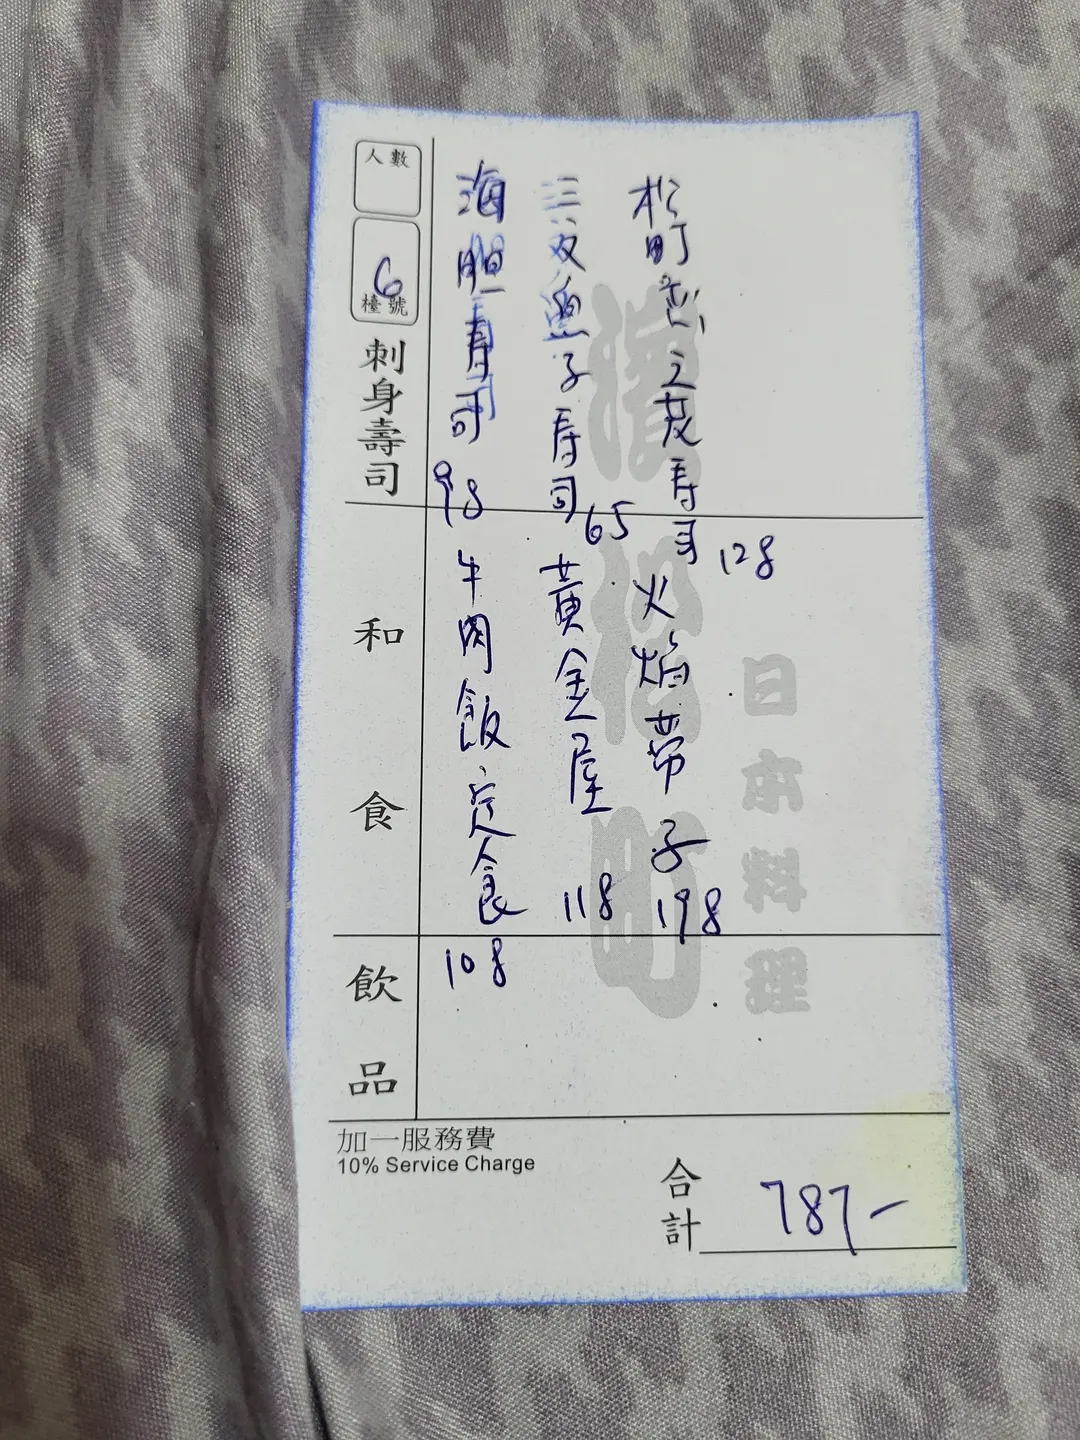 人數
6
檯號
刺身壽司
海胆寿司
98
三文魚子寿司
65
松町志之茂寿司
128
和食
牛肉飯定食
108
黃金屋
118
火焰带子
198
日本料理
飲品
加一服務費
10% Service Charge
合計
787-